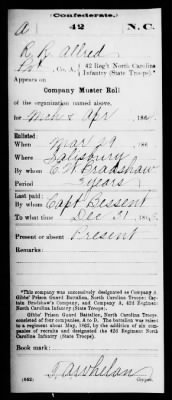 (Confederate.)
A 42 N.C.
R. R. Allred
Pvt, Co. A, 42 Reg't North Carolina Infantry (State Troops).*
Appears on
Company Muster Roll
of the organization named above,
for Mch & Apr, 186
Enlisted:
When Mar 29, 186
Where Salisbury
By whom C. N. Bradshaw
Period 3 years
Last paid:
By whom Capt Bessent
To what time Dec 31, 186
Present or absent Present
Remarks:
*This company was successively designated as Company A,
Gibbs' Prison Guard Battalion, North Carolina Troops; Cap-
tain Bradshaw's Company, and Company A, 42d Regiment
North Carolina Infantry (State Troops).
Gibbs' Prison Guard Battalion, North Carolina Troops,
consisted of four companies, A to D. The battalion was raised
to a regiment about May, 1862, by the addition of six com-
panies of recruits and designated the 42d Regiment North
Carolina Infantry (State Troops).
Book mark:
(642)
Copyist.